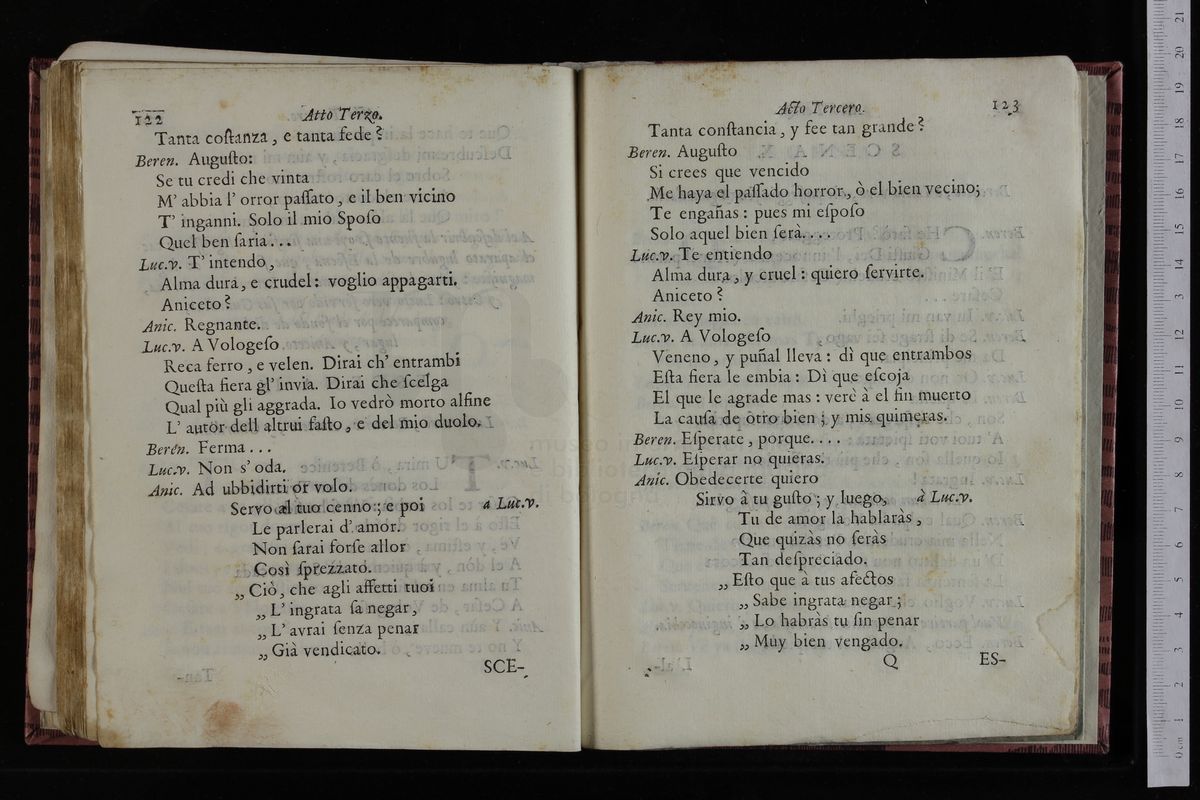 122
Atto Terzo.
Tanta coſtanza, e tanta fede?
Beren. Auguſto:
Se tu credi che vinta
M' abbia l' orror paſſato, e il ben vicino
T' inganni. Solo il mio Spoſo
Quel ben ſaria...
Luc.v. T' intendo,
Alma dura, e crudel: voglio appagarti.
Aniceto?
Anic. Regnante.
Luc.v. A Vologeſo
Reca ferro, e velen. Dirai ch' entrambi
Queſta fiera gl' invia. Dirai che ſcelga
Qual più gli aggrada. Io vedrò morto alfine
L' autor dell altrui faſto, e del mio duolo.
Beren. Ferma...
Luc.v. Non s' oda.
Anic. Ad ubbidirti or volo.
Servo al tuo cenno; e poi a Luc.v.
Le parlerai d' amor.
Non ſarai forſe allor
Così ſprezzato.
„ Ciò, che agli affetti tuoi
„ L' ingrata ſa negar,
„ L' avrai ſenza penar
„ Già vendicato.
SCE-
Acto Tercero.
123
Tanta conſtancia, y fee tan grande?
Beren. Auguſto
Si crees que vencido
Me haya el paſſado horror, ò el bien vecino;
Te engañas: pues mi eſpoſo
Solo aquel bien ſerà....
Luc.v. Te entiendo
Alma dura, y cruel: quiero ſervirte.
Aniceto?
Anic. Rey mio.
Luc.v. A Vologeſo
Veneno, y puñal lleva: dì que entrambos
Eſta fiera le embia: Dì que eſcoja
El que le agrade mas: verè à el fin muerto
La cauſa de òtro bien; y mis quimeras.
Beren. Eſperate, porque....
Luc.v. Eſperar no quieras.
Anic. Obedecerte quiero
Sirvo à tu guſto; y luego, à Luc.v.
Tu de amor la hablaràs,
Que quizàs no ſeràs
Tan deſpreciado.
„ Eſto que à tus afectos
„ Sabe ingrata negar;
„ Lo habràs tu ſin penar
„ Muy bien vengado.
Q
ES-